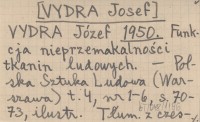 [VYDRA Josef]
VYDRA Józef 1950. Funk-
cja nieprzemakalności
tkanin ludowych. — Pol-
ska Sztuka Ludowa (War-
szawa) t. 4, no 1-6, s. 70-
73, ilustr. Tłum. z czes-